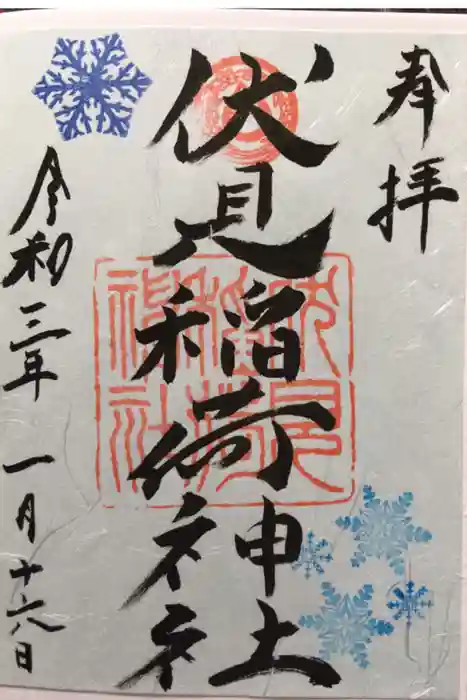 奉拝
伏見稲荷神社
伏見
稲荷
神社
令和三年 一月十六日